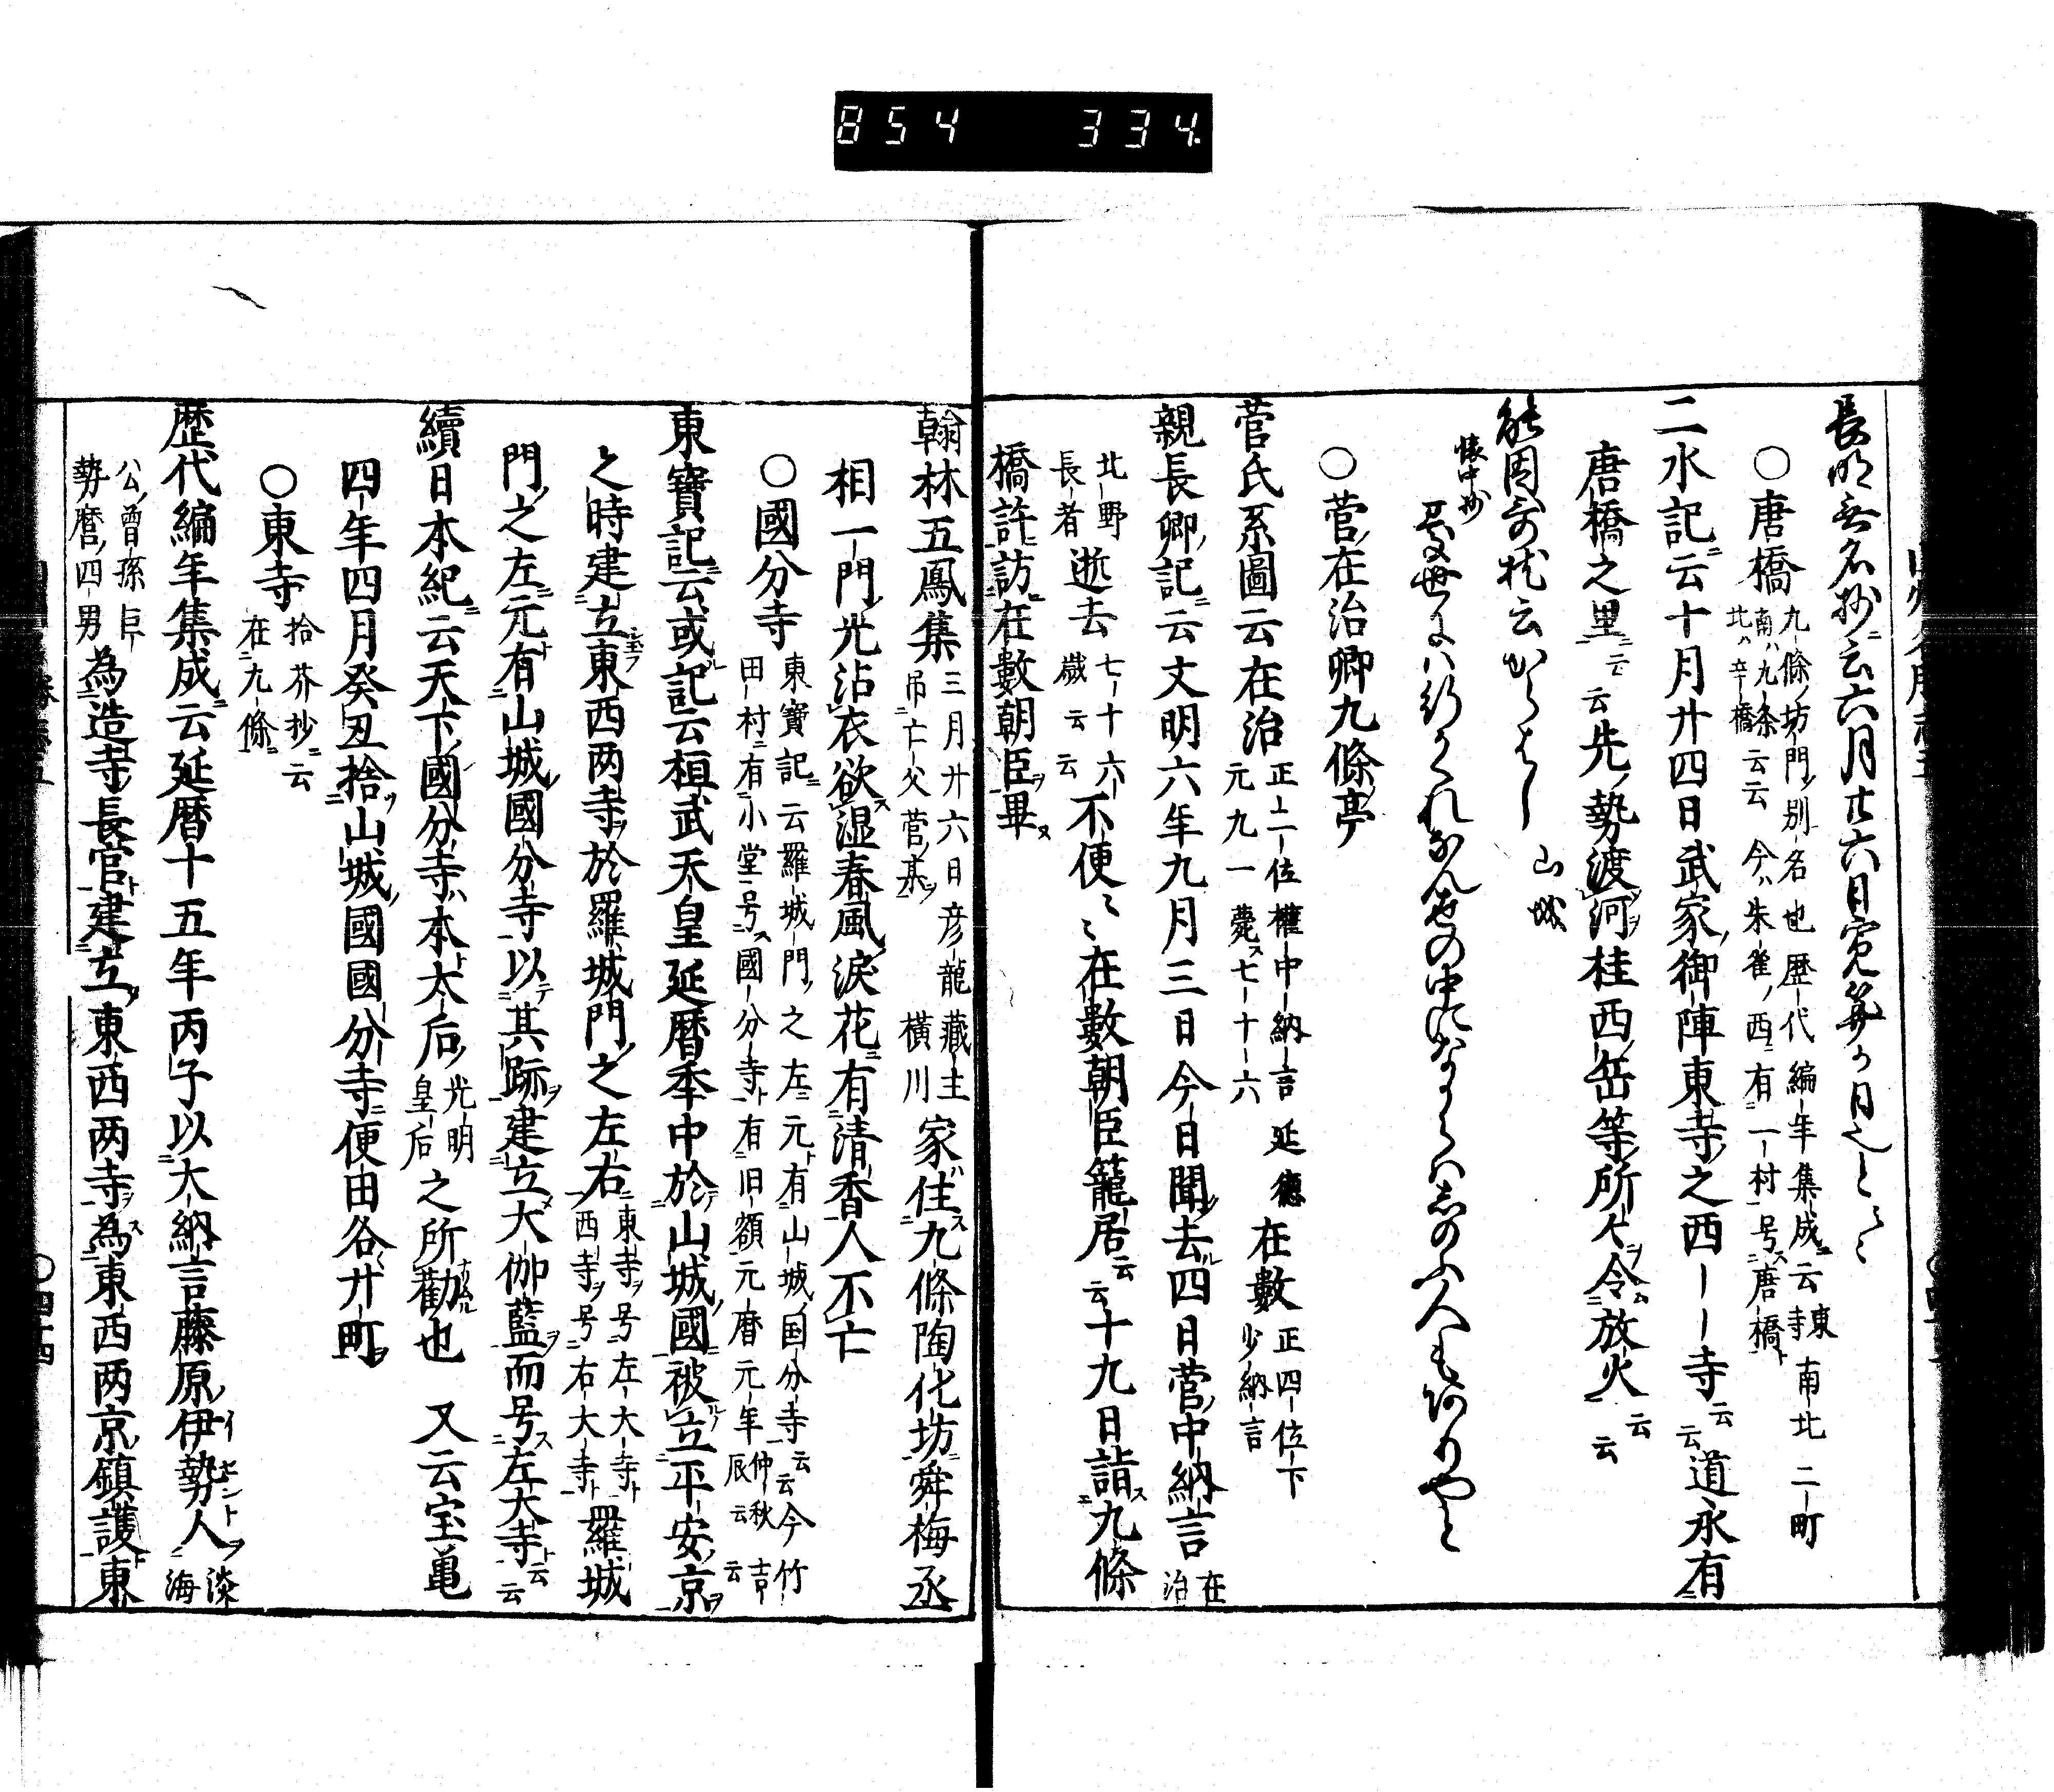 854 334
長明無名抄云六月廿六日寛筭カ日也
○唐橋 九條ノ坊門ノ別名也歴代編年集成ニ云東寺南北二町
南ハ九条北ハ辛橋云云今ハ朱雀ノ西ニ有一村号ス唐橋ト
二水記ニ云十月廿四日武家ノ御陣東寺ノ之西ーー寺云云道永有
唐橋之里ニ云云先ノ勢渡河桂西ノ岳等ノ所〻令放火云云
能因哥枕云からはし 山城
懐中抄
菅ノ在治卿九條ノ亭
菅氏系圖云在治 正二位權中納言延德元九一薨ス七十六 在數 正四位下少納言
親長卿ノ記ニ云文明六年九月三日今日聞去ル四日菅中納言 在治
北野長者 逝去 七十六歳云云 不便〻〻在數朝臣籠居云云十九日詣九條
橋許訪在數朝臣畢
翰林五鳳集 三月廿六日彦龍吊亡父菅ノ墓 藏主横川 家住ス九條陶化坊舜梅丞
相一門ノ光沾衣欲湿春風ノ淚花ニ有清香人不亡
○國分寺 東寶記ニ云羅城門ノ之左ニ元ト有山城ノ国分寺云云今竹
田村ニ有小堂号ス國分寺ト有旧額元曆元年仲秋吉辰云云
東寶記ニ云或ル記云桓武天皇延曆年中於山城ノ國被立平安ノ京ヲ
之時建立東西两寺ヲ於羅城門ノ之左右 東寺ヲ号左大寺ト西寺ヲ号右大寺ト 羅城
門ノ之左ニ元ト有山城ノ國分寺以テ其跡ヲ建立大伽藍ヲ而号ス左大寺ト云云
續日本紀ニ云天下ノ國分寺ハ本ト太后 光明皇后 之所勸也 又云宝亀
四年四月癸丑捨山城ノ國國分寺ニ便田各廿町ヲ
○東寺 拾芥抄ニ云在九條ニ
歷代編年集成ニ云延曆十五年丙子以大納言藤原ノ伊勢人ヲ 淡海
公ノ曽孫巨勢麿ノ四男 為造寺ノ長官ト建立東西两寺ヲ為ス東西两京ノ鎮護ト東